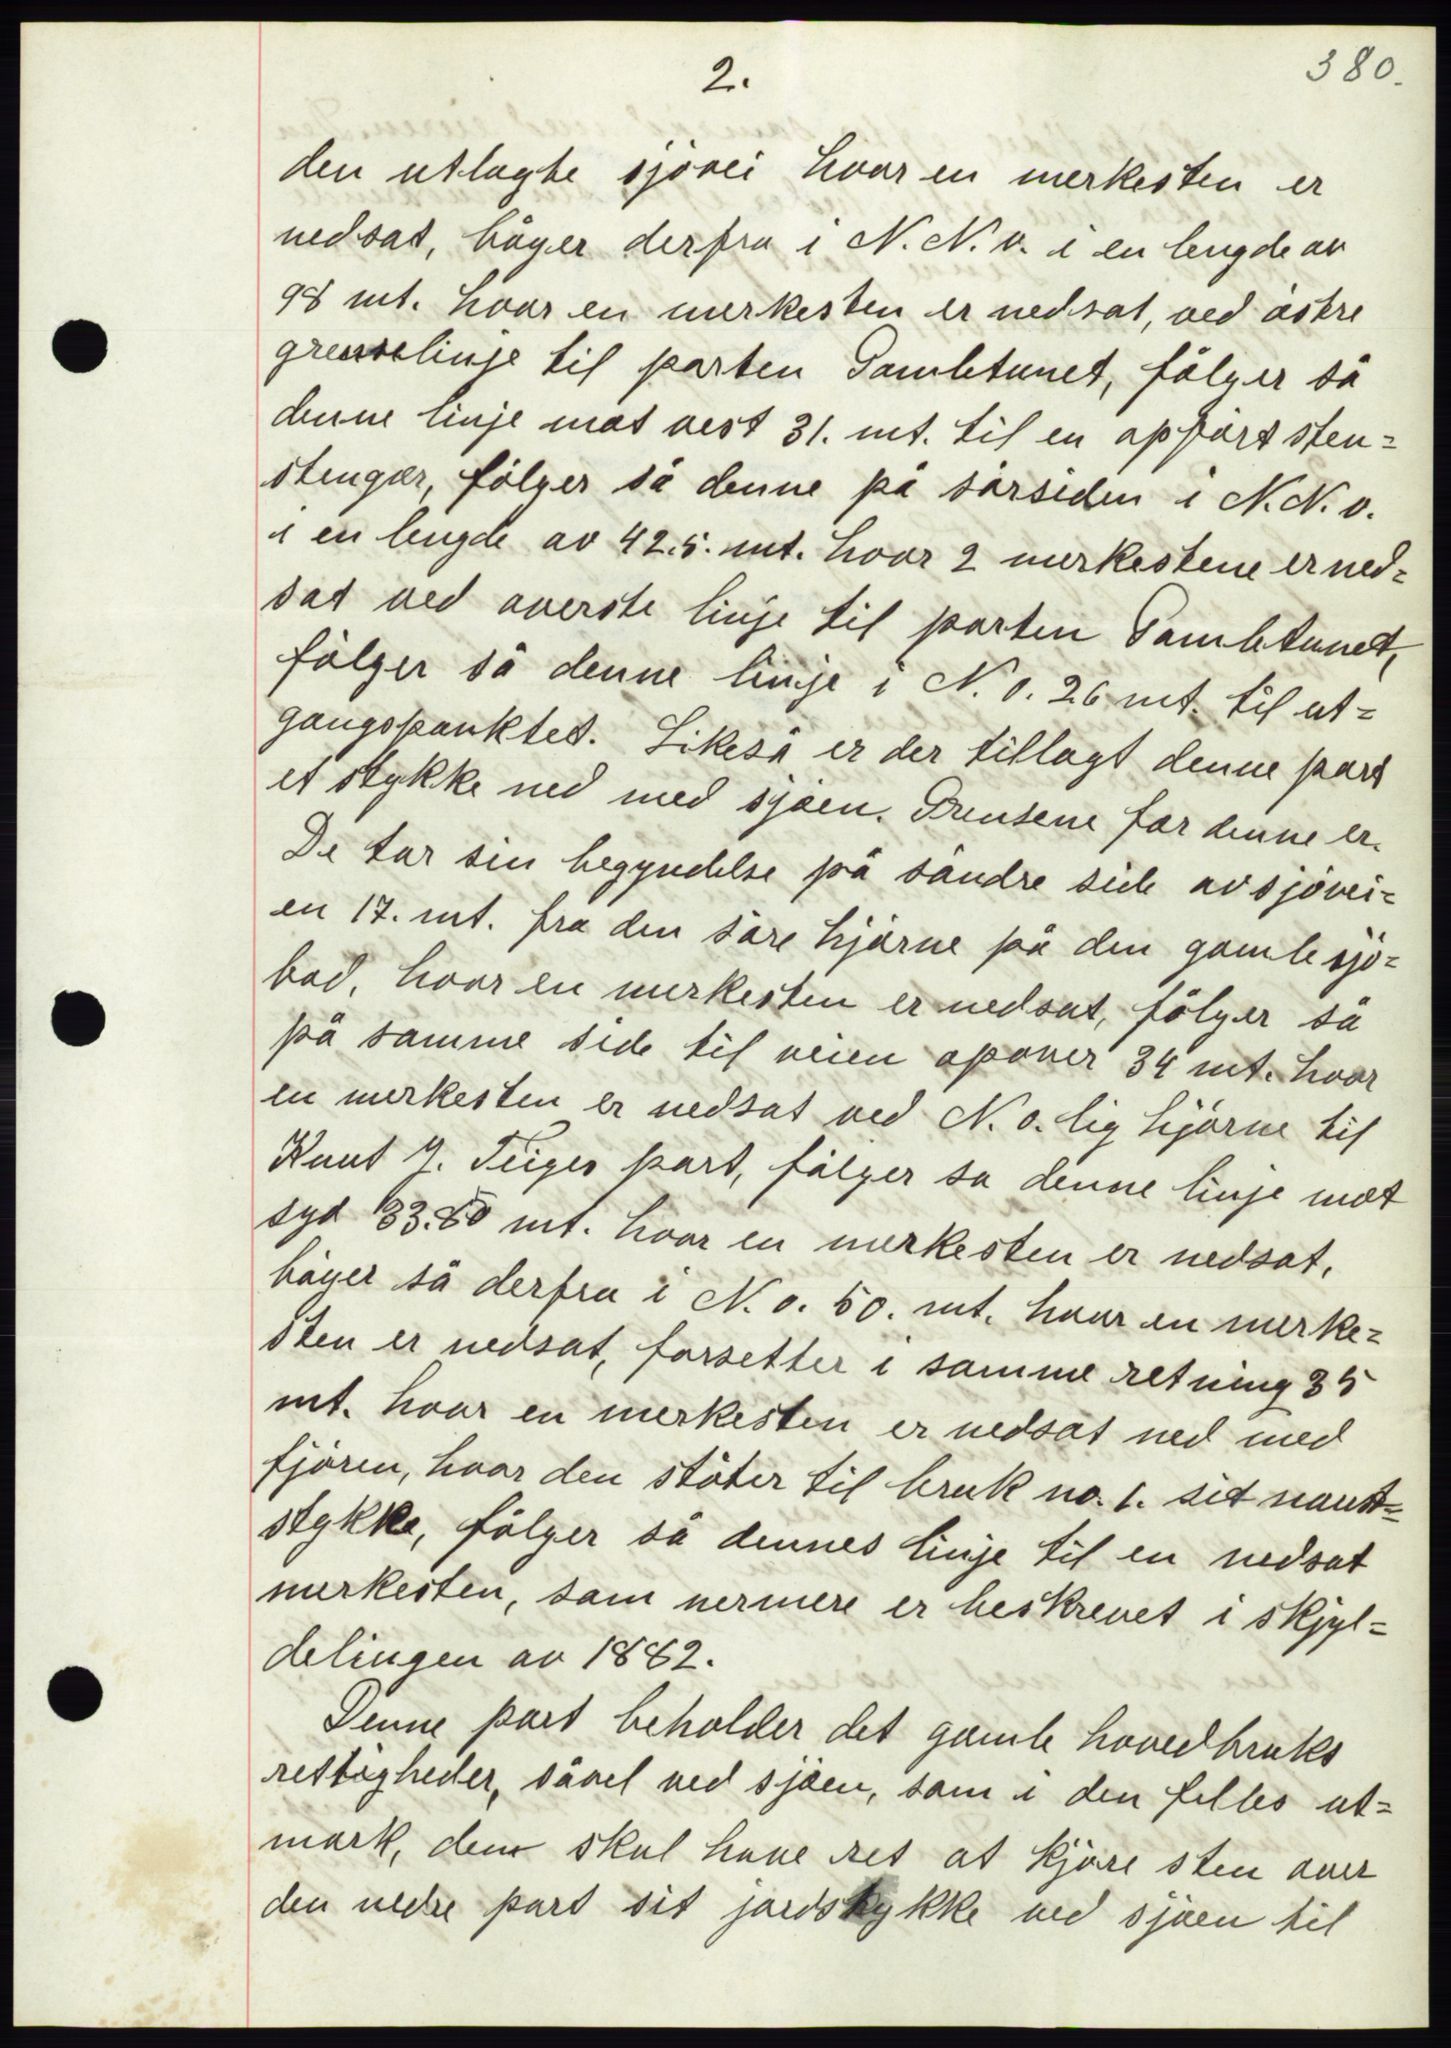 2.
380.
den utlagte sjövei hvor en merkesten er
nedsat, böyer derfra i N.N.v. i en lengde av
98 mt. hvor en merkesten er nedsat, ved östre
grenselinje til parten Gamletunet, fölger så
denne linje mot vest 31. mt. til en opfört sten=
stengær, fölger så denne på sörsiden i N.N.o.
i en lengde av 42.5. mt. hvor 2 merkestene er ned=
sat ved øverste linje til parten Gamletunet,
fölger så denne linje i N.o. 26 mt. til ut=
gangspunktet. Likeså er der tillagt denne part
et stykke ned med sjöen. Grensene for denne er.
De tar sin begyndelse på söndre side av sjövei=
en 17. mt. fra den söre hjörne på den gamle sjö=
bod, hvor en merkesten er nedsat, fölger så
på samme side til veien opover 34 mt. hvor
en merkesten er nedsat ved N.o.lig hjörne til
Knut J. Teiges part, fölger sa denne linje mot
syd 33.50 mt. hvor en merkesten er nedsat,
böyer så derfra i N.o. 50. mt. hvor en merke=
sten er nedsat, forsetter i samme retning 35
mt. hvor en merkesten er nedsat ned med
fjören, hvor den stöter til bruk no. 1. sit naust=
stykke, fölger så dennes linje til en nedsat
merkesten, som nermere er beskrevet i skjyl=
delingen av 1882.
Denne part beholder det gamle hovedbruks
rettigheder, såvel ved sjöen, som i den felles ut=
mark, den skal have ret at kjöre sten over
den nedre part sit jordstykke ved sjöen til